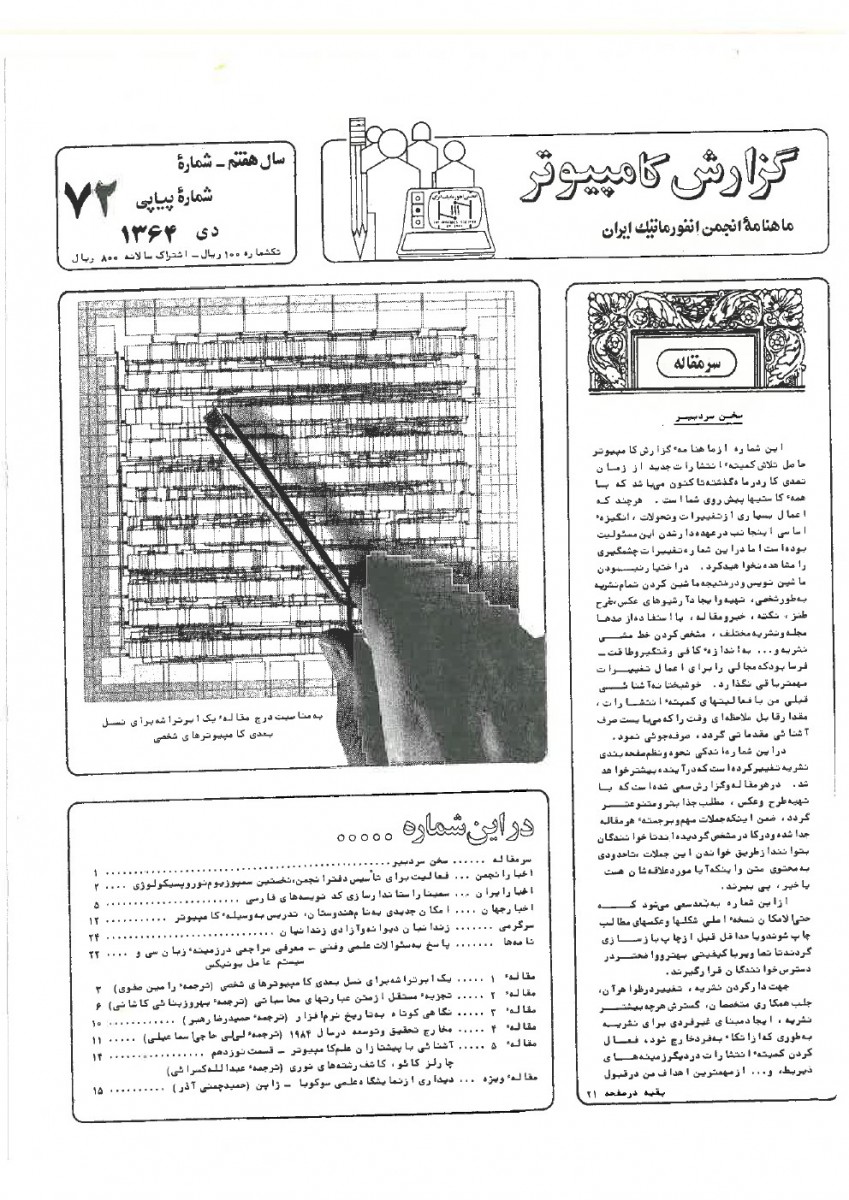 گزارش کامپیوتر
ماهنامهٔ انجمن انفورماتیک ایران
سال هفتم - شمارهٔ
شمارهٔ پیاپی ۷۲
دی ۱۳۶۴
تکشماره ۱۰۰ ریال - اشتراک سالانه ۸۰۰ ریال
سرمقاله
سخن سردبیر
این شماره از ماهنامهٔ گزارش کامپیوتر
حاصل تلاش کمیتهٔ انتشارات جدید از زمان
تصدی کار در ماه گذشته تا کنون میباشد که با
همهٔ کاستیها پیش روی شما است . هرچند که
اعمال بسیاری از تغییرات و تحولات، انگیزهٔ
اساسی اینجانب در عهده دار شدن این مسئولیت
بوده است اما در این شماره تغییرات چشمگیری
را مشاهده نخواهید کرد. در اختیار نبودن
ماشین نویس و در نتیجه ماشین کردن تمام نشریه
به طور شخصی، تهیه و ایجاد آرشیوهای عکس، طرح
طنز، نکته، خبر و مقاله، با استفاده از صدها
مجله و نشریه مختلف، مشخص کردن خط مشی
نشریه و... به اندازهٔ کافی وقتگیر و طاقت-
فرسا بود که مجالی را برای اعمال تغییرات
مهمتر باقی نگذارد. خوشبختانه آشنائی
قبلی من با فعالیتهای کمیتهٔ انتشارات،
مقدار قابل ملاحظهای وقت را که میبایست صرف
آشنائی مقدماتی گردد، صرفهجوئی نمود.
در این شماره اندکی نحوه و نظم صفحه بندی
نشریه تغییر کرده است که در آینده بیشتر خواهد
شد. در هر مقاله و گزارش سعی شده است که با
تهیه طرح و عکس، مطلب جذابتر و متنوعتر
گردد، ضمن اینکه جملات مهم و برجستهٔ هر مقاله
جدا شده و در کادر مشخص گردیدهاند تا خوانندگان
بتوانند از طریق خواندن این جملات، تا حدودی
به محتوی متن و اینکه آیا مورد علاقهشان هست
یا خیر، پی ببرند.
از این شماره به بعد سعی میشود که
حتیالامکان نسخهٔ اصلی شکلها و عکسهای مطالب
چاپ شوند و یا حداقل قبل از چاپ بازسازی
گردند تا تصاویر با کیفیتی بهتر و واضحتر در
دسترس خوانندگان قرار گیرند.
جهت دار کردن نشریه، تغییر در ظواهر آن،
جلب همکاری متخصصان، گسترش هرچه بیشتر
نشریه، ایجاد مبنای غیر فردی برای نشریه
به طوری که از اتکاء به فرد خارج شود، فعال
کردن کمیتهٔ انتشارات در دیگر زمینههای
ذیربط، و... از مهمترین اهداف من در قبول
بقیه در صفحه ۲۱
به مناسبت درج مقالهٔ یک ابرتراشه برای نسل
بعدی کامپیوترهای شخصی
در این شماره .....
سرمقاله ...... سخن سردبیر ...... ۱
اخبار انجمن ... فعالیت برای تأسیس دفتر انجمن، نخستین سمپوزیوم نوروپسیکولوژی .... ۲
اخبار ایران ... سمینار استاندارسازی کد نویسههای فارسی ...... ۵
اخبار جهان .... امکان جدیدی به نام هندوستان، تدریس به وسیلهٔ کامپیوتر ...... ۱۲
سرگرمی ....... زندانبان دیوانه و آزادی زندانیان ...... ۲۴
نامهها ....... پاسخ به سئوالات علمی و فنی - معرفی مراجعی در زمینهٔ زبان سی و .... ۲۲
سیستم عامل یونیکس
مقالهٔ ۱ ..... یک ابرتراشه برای نسل بعدی کامپیوترهای شخصی (ترجمهٔ رامین صفوی) ۳
مقالهٔ ۲ ..... تجزیهٔ مستقل از متن عبارتهای محاسباتی (ترجمهٔ بهروز بنائی کاشانی) ۶
مقالهٔ ۳ ..... نگاهی کوتاه به تاریخ نرم افزار (ترجمهٔ حمیدرضا رهبر) ...... ۱۰
مقالهٔ ۴ ..... مخارج تحقیق و توسعه در سال ۱۹۸۴ (ترجمهٔ لیلی حاجی اسماعیلی) .... ۱۱
مقالهٔ ۵ ..... آشنائی با پیشتازان علم کامپیوتر - قسمت نوزدهم ...... ۱۴
چارلز کائو، کاشف رشتههای نوری (ترجمهٔ عبدالله کسرائی)
مقالهٔ ویژه ... دیداری از نمایشگاه علمی سوکوبا - ژاپن (حمید چمنی آذر) ...... ۱۵